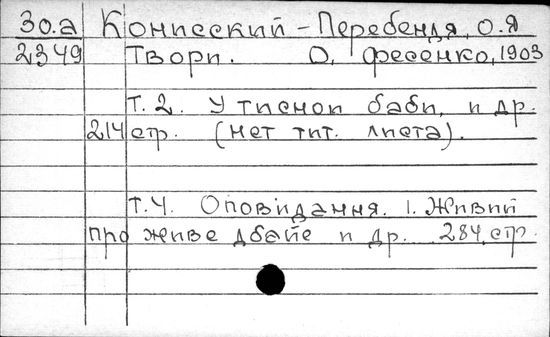 30.а Кониский - Перебендя, О.Я
2349 Твори. О, Фесенко, 1903
Т. 2. У тисной баби, и др.
214 стр. (нет тит. листа).
Т.4. Оповiдання. 1. Живий
про живе дбайе и др. 284, стр.